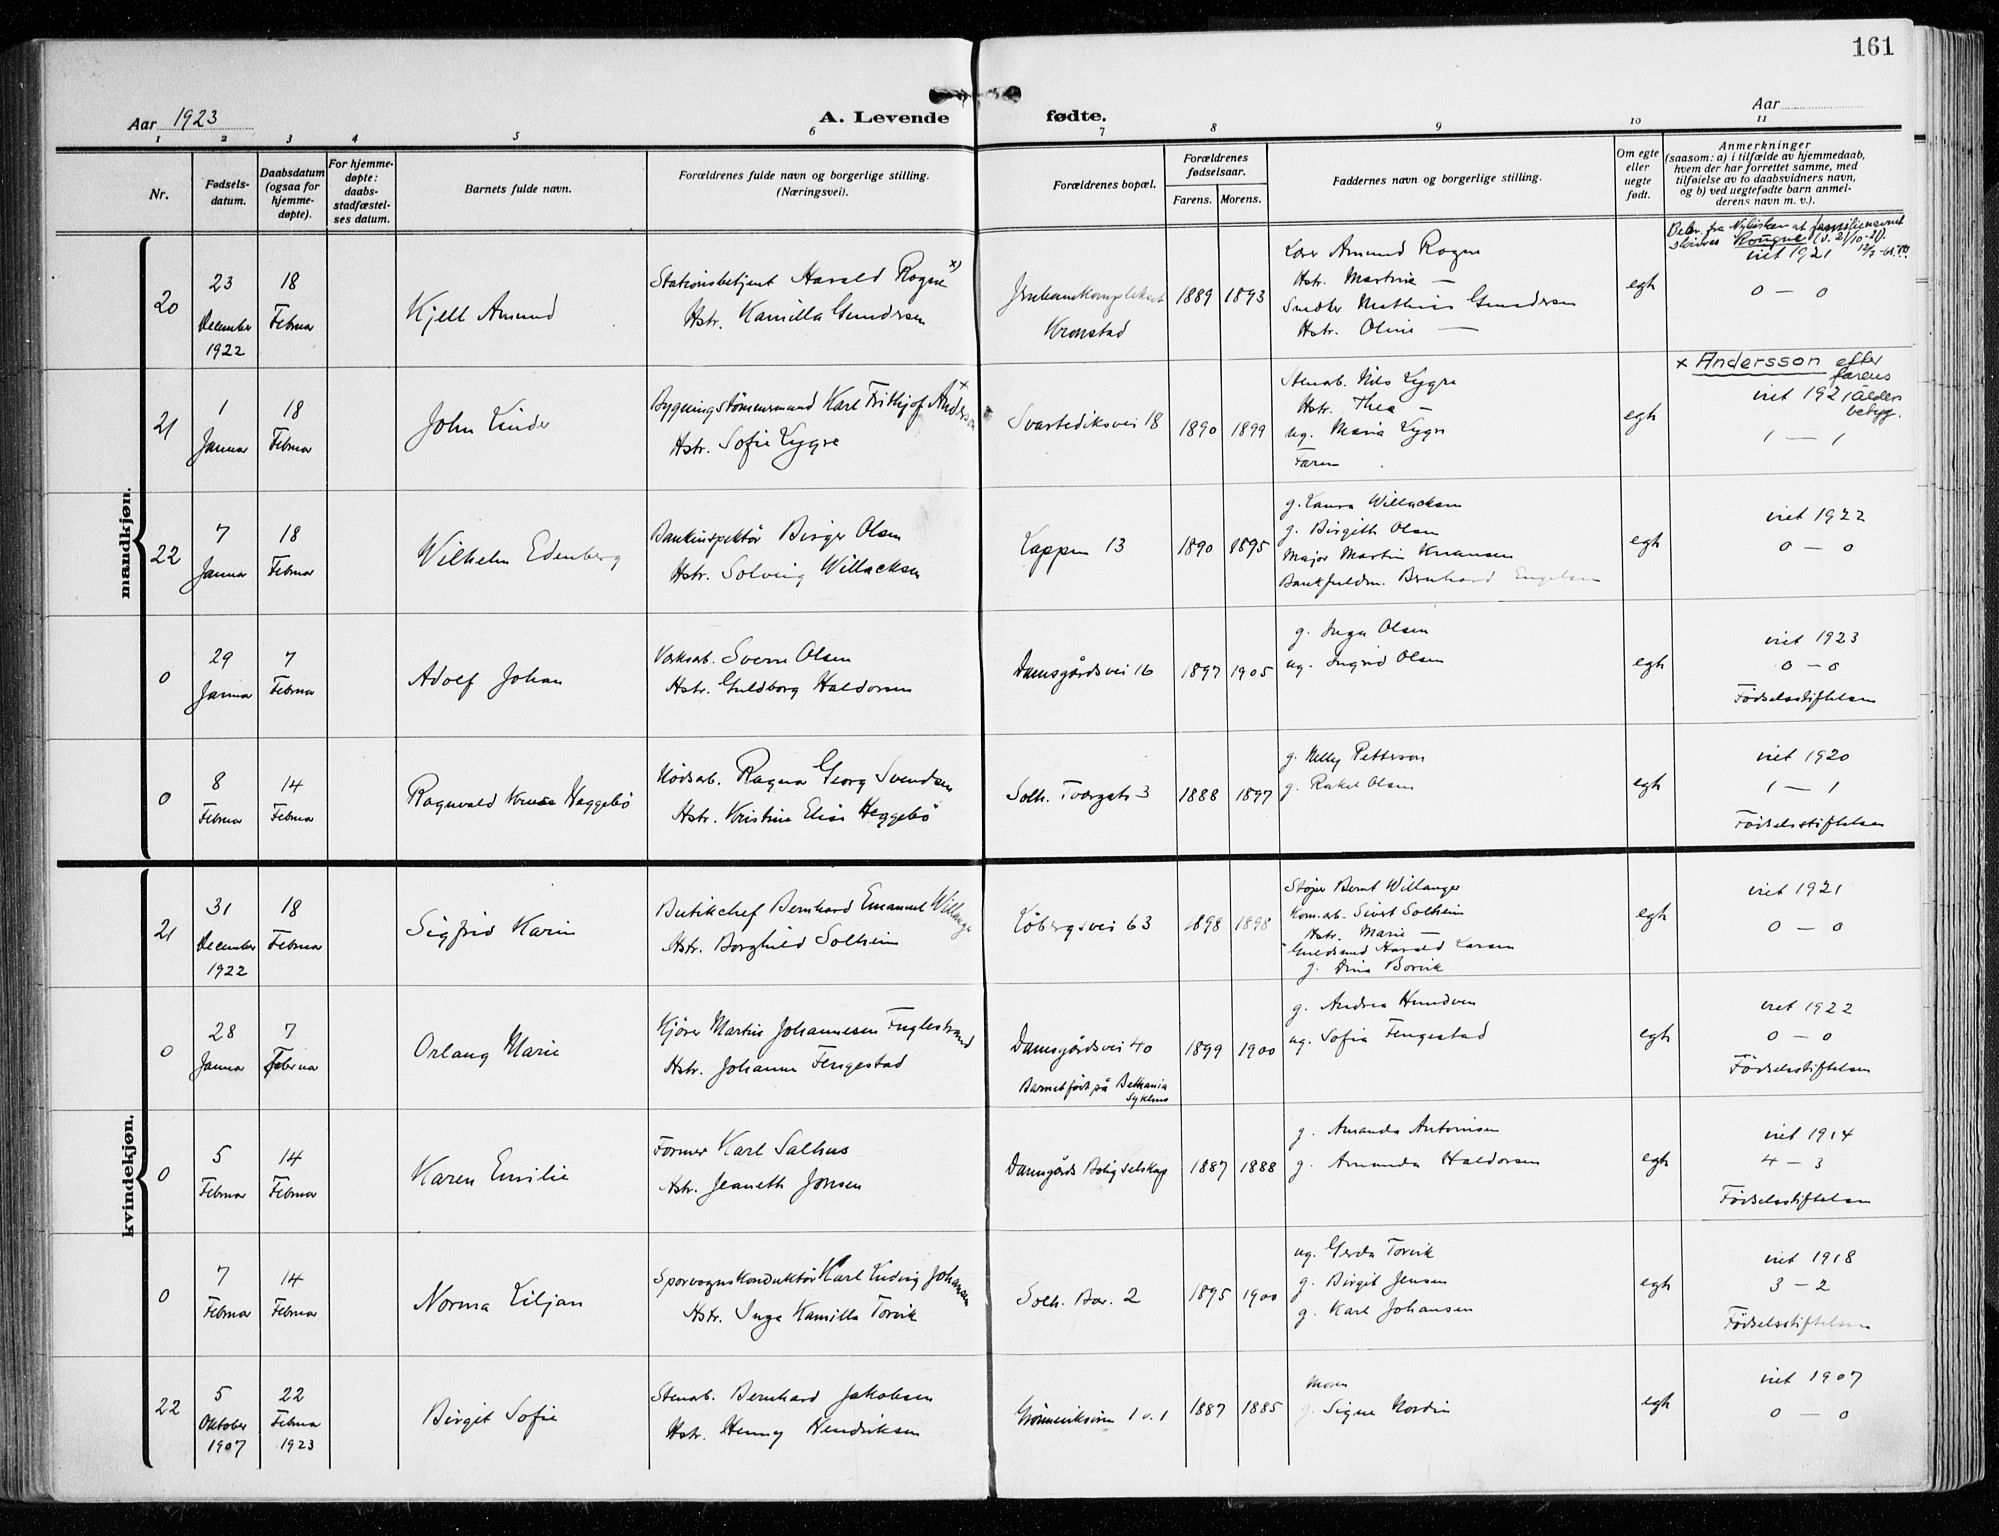 161
Aar 1923
A. Levende fødte.
Aar
1 2 3 4 5 6 7 8 9 10 11
Nr.
Fødsels-
datum.
Daabsdatum
(ogsaa for
hjemme-
døpte).
For hjemme-
døpte:
daabs-
stadfæstel-
ses datum.
Barnets fulde navn.
Forældrenes fulde navn og borgerlige stilling.
(Næringsvei).
Forældrenes bopæl.
Forældrenes
fødselsaar.
Farens. Morens.
Faddernes navn og borgerlige stilling.
Om egte
eller
uegte
født.
Anmerkninger
(saasom: a) i tilfælde av hjemmedaab,
hvem der har forrettet samme, med
tilføielse av to daabsvidners navn,
og b) ved uegtefødte barn anmel-
derens navn m. v.).
mandkjøn.
20
23
December
1922
18
Februar
Kjell Amund
Stationsbetjent Harald Rogne x)
Hstr. Kamilla Gundersen
Jernbanekomplekset
Kronstad
1889 1893
Lærer Amund Rogne
Hstr. Martina —
Snedker Mathias Gundersen
Hstr. Oline —
egte
fra at familienavnet
skrives Rougne
viet 1921
0 — 0
21
1
Januar
18
Februar
John Linder
Bygningstømmermand Karl Frithjof Anderson x
Hstr. Sofie Lygre
Svartediksvei 18
1890 1899
Stenarb. Nils Lygre
Hstr. Thea —
ug. Maria Lygre
Faren
egte
x Andersson efter
farens
viet 1921
1 — 1
22
7
Januar
18
Februar
Wilhelm Edenberg
Bankinspektör Birger Olsen
Hstr. Solveig Willacksen
Lappen 13
1890 1895
g. Laura Willacksen
g. Birgith Olsen
Major Martin
Bankfuldm. Bernhard Engelsen
egte
viet 1922
0 — 0
0
29
Januar
7
Februar
Adolf Johan
Verksarb. Sverre Olsen
Hstr. Guldborg Haldorsen
Damsgårdsvei 16
1897 1905
g. Inga Olsen
ug. Ingrid Olsen
egte
viet 1923
0 — 0
Fødselsstiftelsen
0
8
Februar
14
Februar
Ragnvald Kruse Heggebö
Nødsarb. Ragnv Georg Svendsen
Hstr. Kristine Elise Heggebö
Solh. Tværgate 3
1888 1897
g. Nelly Petterson
g. Rakel Olsen
egte
viet 1920
1 — 1
Fødselsstiftelsen
kvindekjøn.
21
31
December
1922
18
Februar
Sigfrid Karin
Butikchef Bernhard Emanuel Willanger
Hstr. Borghild Solheim
Løbergsvei 63
1898 1898
Støper Bernt Willanger
Kom. arb. Sivert Solheim
Hstr. Marie —
Guldsmed Harald Larsen
g. Dina Borvik
egte
viet 1921
0 — 0
0
28
Januar
7
Februar
Orlaug Marie
Kjører Martin Johannesen Fuglestrand
Hstr. Johanne Fengestad
Damsgårdsvei 40
Barnet født på Bethania
Sykehus
1899 1900
g. Andrea Hundven
ug. Sofia Fengestad
egte
viet 1922
0 — 0
Fødselsstiftelsen
0
5
Februar
14
Februar
Karen Emilie
Former Karl Salhus
Hstr. Jeaneth Jonsen
Damsgårds Boligselskap
1887 1888
g. Amanda Antonisen
g. Amanda Haldorsen
egte
viet 1914
4 — 3
Fødselsstiftelsen
0
7
Februar
14
Februar
Norma Liljan
Sporvognskonduktör Karl Ludvig Johansen
Hstr. Inga Kamilla Torvik
Solh. Bar. 2
1895 1900
ug. Gerda Torvik
g. Birgit Jensen
g. Karl Johansen
egte
viet 1918
3 — 2
Fødselsstiftelsen
22
5
Oktober
1907
22
Februar
1923
Birgit Sofie
Stenarb. Bernhard Jakobsen
Hstr. Henny Hendriksen
1887 1885
Moren
g. Signe Nordin
egte
viet 1907
0 — 0